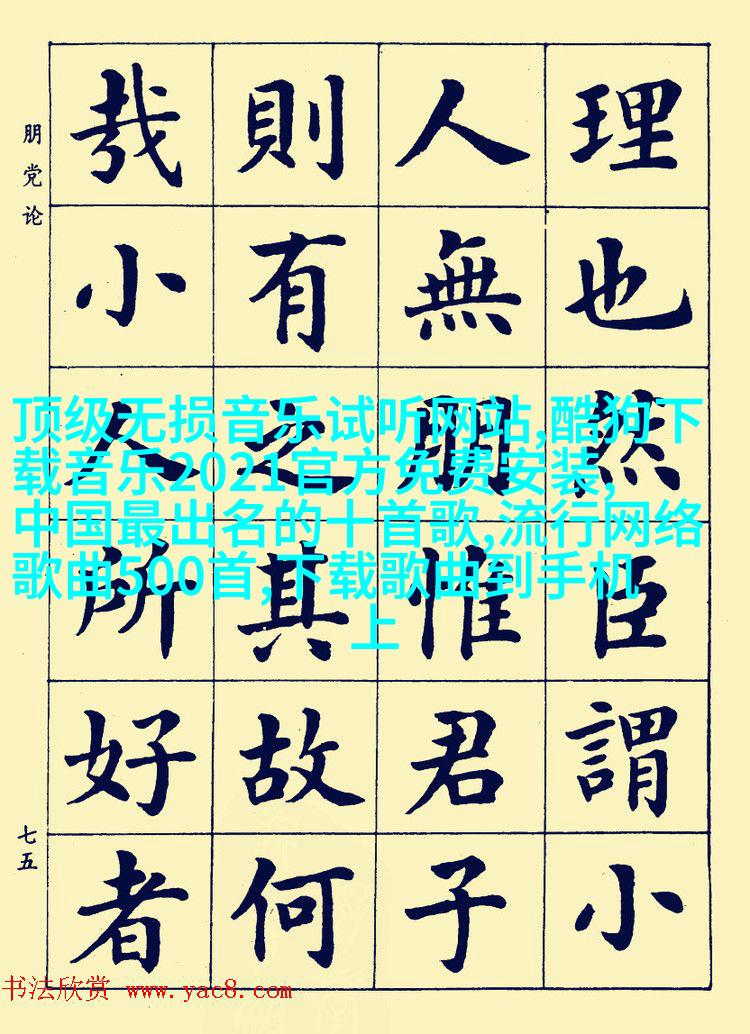 理也然臣謂小
人無朋惟君子
則有之其故何
哉小人所好者
朋党论
七五
顶级无损音乐试听网站,酷狗下
载音乐2021官方免费安装,
中国最出名的十首歌,流行网络
歌曲500首,下载歌曲到手机
上
书法欣赏 www.yac8.com